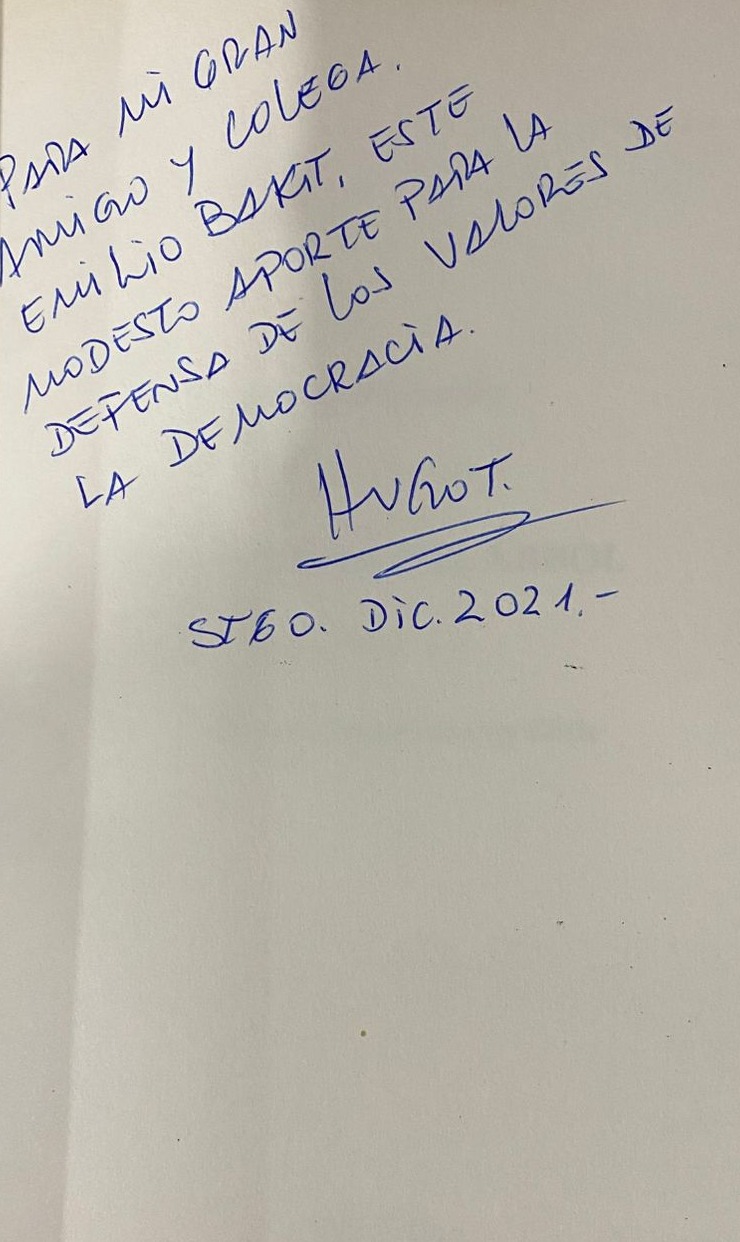 PARA MI GRAN
AMIGO Y COLEGA.
EMILIO BAKIT, ESTE
MODESTO APORTE PARA LA
DEFENSA DE LOS VALORES DE
LA DEMOCRACIA.
HUGO T.
STGO. DIC. 2021.-